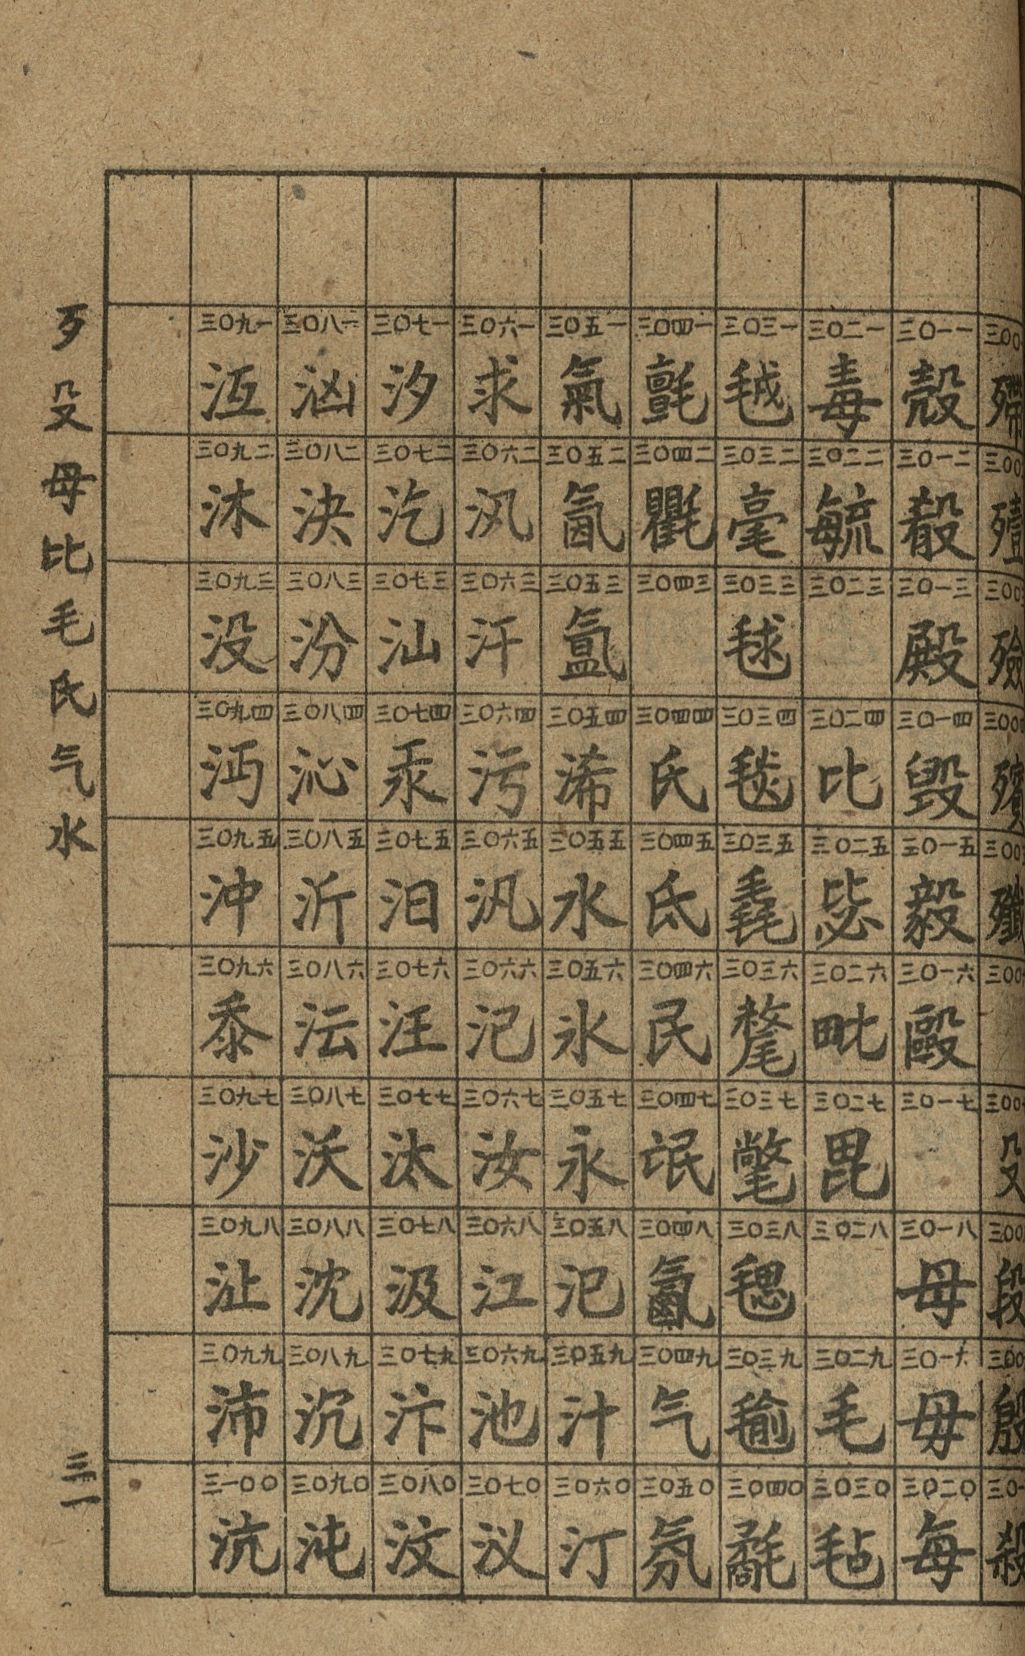 殢 殪 殮 殯 殲 殳 段 殷 殺
三〇一一 殼 三〇一二 殽 三〇一三 殿 三〇一四 毀 三〇一五 毅 三〇一六 毆 三〇一七 三〇一八 母 三〇一九 毋 三〇二〇 每
三〇二一 毒 三〇二二 毓 三〇二三 三〇二四 比 三〇二五 毖 三〇二六 毗 三〇二七 毘 三〇二八 三〇二九 毛 三〇三〇 毡
三〇三一 毧 三〇三二 毫 三〇三三 毬 三〇三四 毯 三〇三五 毳 三〇三六 氂 三〇三七 氅 三〇三八 毸 三〇三九 毹 三〇四〇 氄
三〇四一 氈 三〇四二 氍 三〇四三 三〇四四 氏 三〇四五 氐 三〇四六 民 三〇四七 氓 三〇四八 三〇四九 气 三〇五〇 氛
三〇五一 氣 三〇五二 氤 三〇五三 氳 三〇五四 浠 三〇五五 水 三〇五六 氷 三〇五七 永 三〇五八 氾 三〇五九 汁 三〇六〇 汀
三〇六一 求 三〇六二 汛 三〇六三 汗 三〇六四 污 三〇六五 汎 三〇六六 汜 三〇六七 汝 三〇六八 江 三〇六九 池 三〇七〇 汊
三〇七一 汐 三〇七二 汔 三〇七三 汕 三〇七四 汞 三〇七五 汨 三〇七六 汪 三〇七七 汰 三〇七八 汲 三〇七九 汴 三〇八〇 汶
三〇八一 汹 三〇八二 決 三〇八三 汾 三〇八四 沁 三〇八五 沂 三〇八六 沄 三〇八七 沃 三〇八八 沈 三〇八九 沉 三〇九〇 沌
三〇九一 沍 三〇九二 沐 三〇九三 没 三〇九四 沔 三〇九五 沖 三〇九六 三〇九七 沙 三〇九八 沚 三〇九九 沛 三一〇〇 沆
歹殳毋比毛氏气水
三一